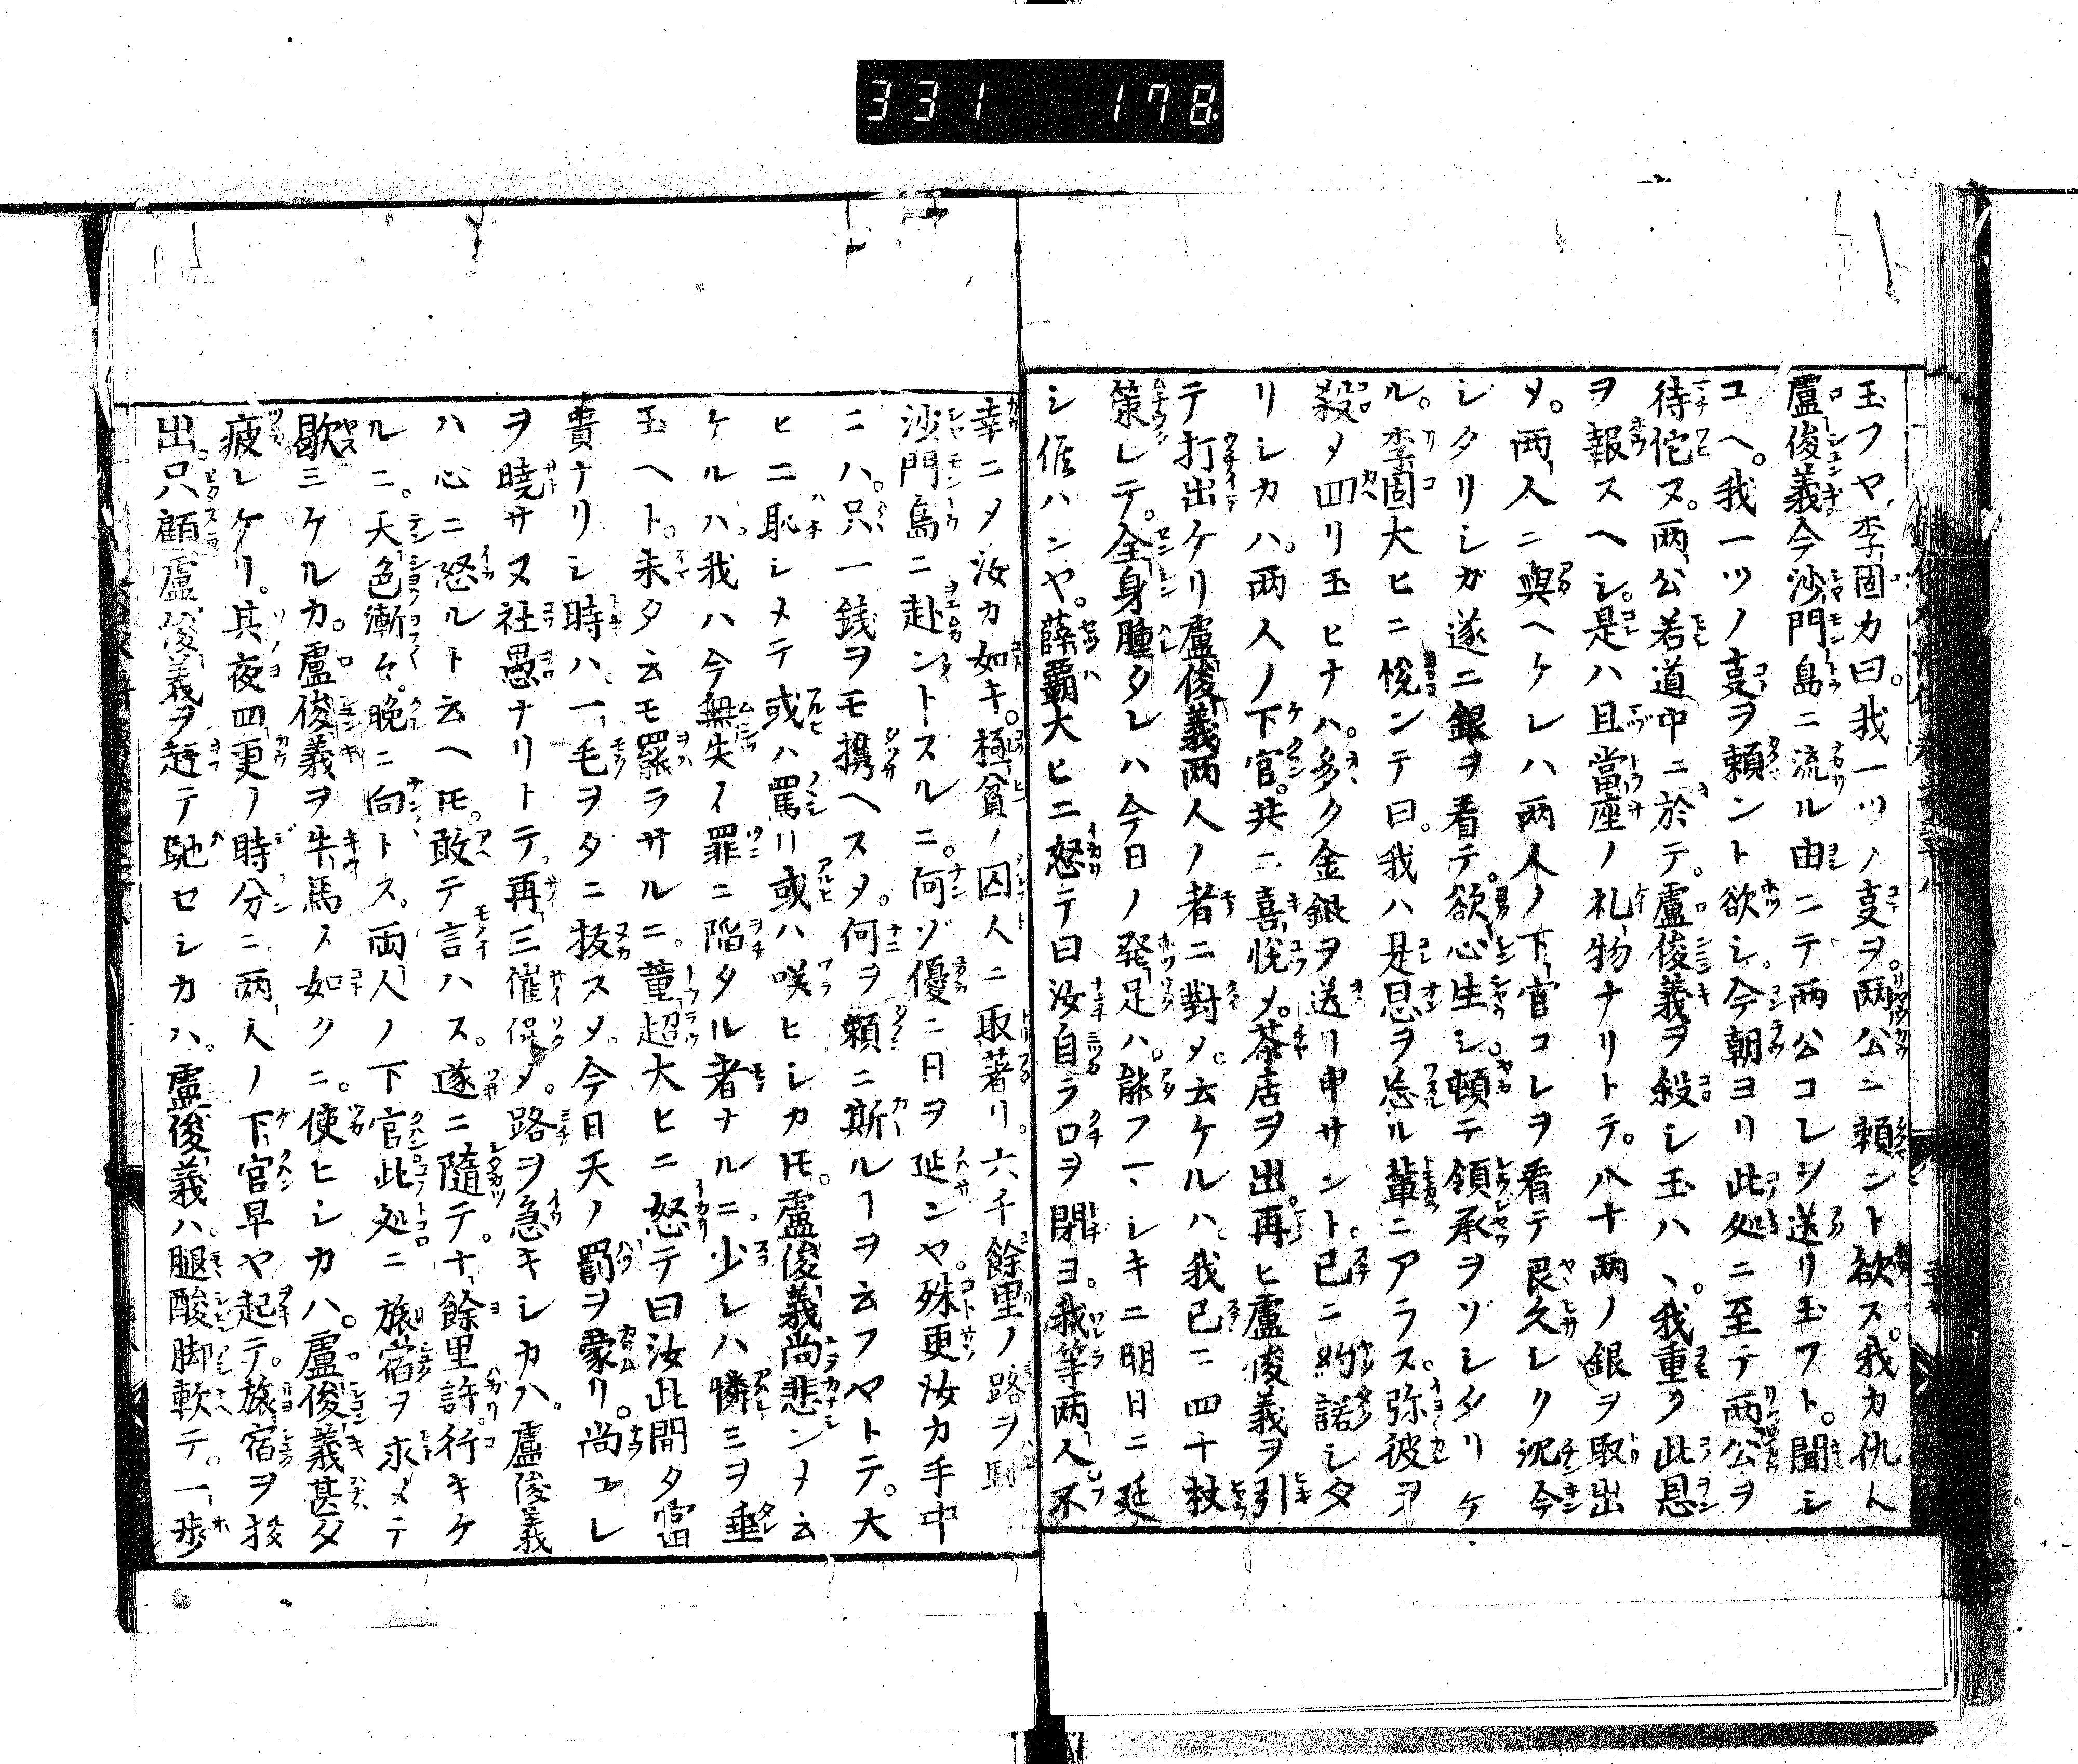 331 178
玉フヤ李固カ曰。我一ツノ叓ヲ。両公ニ頼ント欲ス。我カ仇人
盧俊義今沙門島ニ流ル由ニテ両公コレヲ送リ玉フト。聞シ
コヘ。我一ツノ叓ヲ頼ント欲シ。今朝ヨリ此処ニ至テ両公ヲ
待佗ヌ。両公若道中ニ於テ。盧俊義ヲ殺シ玉ハヽ。我重ク此恩
ヲ報スヘシ。是ハ且當座ノ礼物ナリトテ。八十両ノ銀ヲ取出
メ。両人ニ與ヘケレハ両人ノ下官コレヲ看テ良久シク沉吟
シタリシガ遂ニ銀ヲ看テ。欲心生シ。頓テ領承ヲゾシタリケ
ル。李固大ヒニ悦ンテ曰。我ハ是恩ヲ忘ル輩ニアラス。弥彼ヲ
殺メ皈リ玉ヒナハ。多ク金銀ヲ送リ申サント。已ニ約諾シタ
リシカハ。両人ノ下官。共ニ喜悦メ。茶店ヲ出。再ヒ盧俊義ヲ引
テ打出ケリ盧俊義両人ノ者ニ對メ。云ケルハ。我已ニ四十杖
策レテ。全身腫タレハ今日ノ発足ハ。能フヿシキニ明日ニ延
シ候ハンヤ。薛覇大ヒニ怒テ曰汝自ラ口ヲ閉ヨ。我等両人不
幸ニメ汝カ如キ。極貧ノ囚人ニ取著リ。六千餘里ノ路ヲ
沙門島ニ赴ントスルニ。何ゾ優ニ日ヲ延ンヤ。殊更汝カ手中
ニハ。只一銭ヲモ攜ヘスメ。何ヲ頼ニ斯ルヿヲ云フヤトテ。大
ヒニ恥シメテ或ハ罵リ或ハ咲ヒシカ𪜈。盧俊義尚悲ンメ云
ケルハ。我ハ今無失ノ罪ニ陷タル者ナルニ。少シハ憐ミヲ垂
玉ヘト。未タ云モ罷ラサルニ。董超大ヒニ怒テ曰汝此間タ富
貴ナリシ時ハ。一毛ヲタニ抜スメ。今日天ノ罰ヲ蒙リ。尚コレ
ヲ曉サヌ社愚ナリトテ。再三催促メ。路ヲ急キシカハ。盧俊義
ハ心ニ怒ルト云ヘ𪜈。敢テ言ハス。遂ニ隨テ。十餘里許行キケ
ルニ。天色漸ク。晩ニ向トス。両人ノ下官此処ニ旅宿ヲ求メテ
歇ミケルカ。盧俊義ヲ牛馬ノ如クニ。使ヒシカハ。盧俊義甚タ
疲レケリ。其夜四更ノ時分ニ両人ノ下官早ヤ起テ。旅宿ヲ投
出。只顧盧俊義ヲ趕テ馳セシカハ。盧俊義ハ。腿酸脚軟テ。一歩